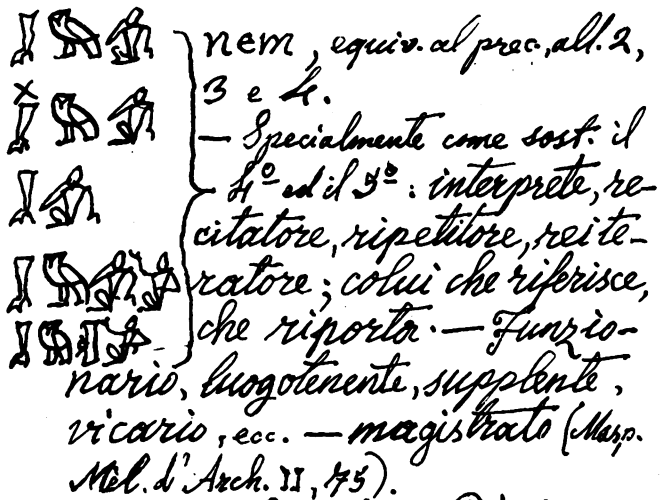 nem, equiv. al prec., all. 2,
3 e 4.
— Specialmente come sost. il
4º ed il 5º: interprete, re-
citatore, ripetitore, reite-
ratore; colui che riferisce,
che riporta. — Funzio-
nario, luogotenente, supplente,
vicario, ecc. — magistrato (Masp.
Mèl. d'Arch. II, 75).